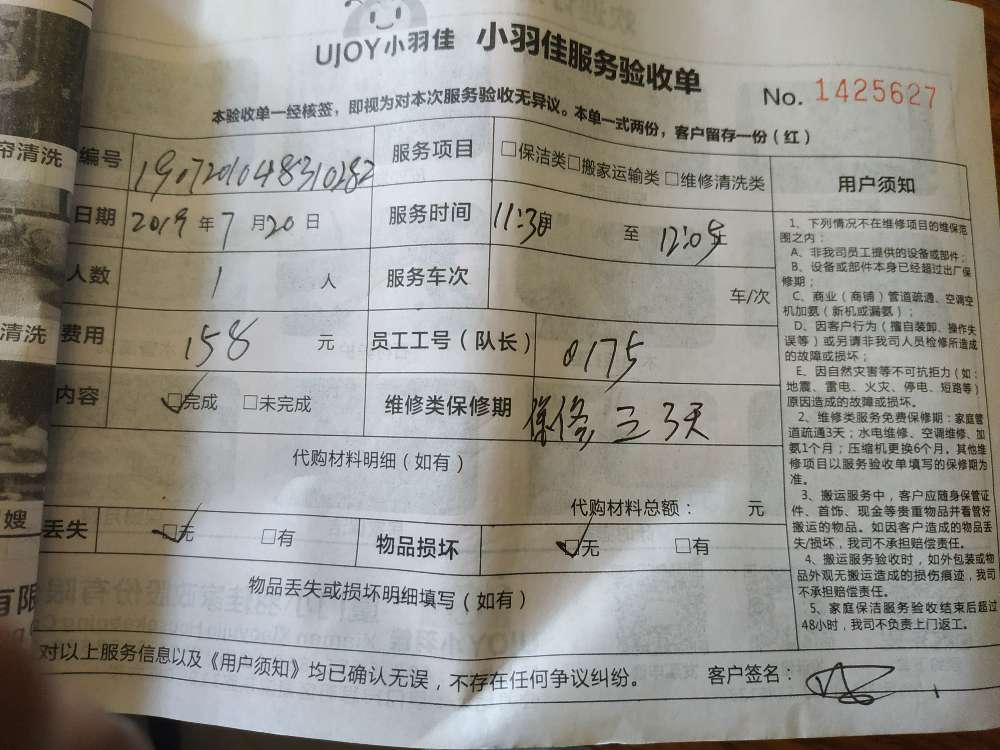 UJOY小羽佳 小羽佳服务验收单
No. 1425627
本验收单一经核签，即视为对本次服务验收无异议。本单一式两份，客户留存一份（红）
帘清洗
清洗
嫂
有限
编号 1907201048310282 服务项目 □保洁类□搬家运输类 □维修清洗类
日期 2019 年 7 月 20 日 服务时间 11:30 至 12:05
人数 1 人 服务车次 车/次
费用 158 元 员工工号（队长） 0175
内容 ☑完成 □未完成 维修类保修期 保修 三 3天
代购材料明细（如有）
代购材料总额： 元
丢失 ☑无 □有 物品损坏 ☑无 □有
物品丢失或损坏明细填写（如有）
对以上服务信息以及《用户须知》均已确认无误，不存在任何争议纠纷。 客户签名：
用户须知
1、下列情况不在维修项目的维保范
围之内：
A、非我司员工提供的设备或部件；
B、设备或部件本身已经超过出厂保
修期；
C、商业（商铺）管道疏通、空调空
机加氨（新机或漏氨）；
D、因客户行为（擅自装卸、操作失
误等）或另请非我司人员检修所造成
的故障或损坏；
E、因自然灾害等不可抗拒力（如：
地震、雷电、火灾、停电、短路等）
原因造成的故障或损坏。
2、维修类服务免费保修期：家庭管
道疏通3天；水电维修、空调维修、加
氨1个月；压缩机更换6个月。其他维
修项目以服务验收单填写的保修期为
准。
3、搬运服务中，客户应随身保管证
件、首饰、现金等贵重物品并看管好
搬运的物品。如因客户造成的物品丢
失/损坏，我司不承担赔偿责任。
4、搬运服务验收时，如外包装或物
品外观无搬运造成的损伤痕迹，我司
不承担赔偿责任。
5、家庭保洁服务验收结束后超过
48小时，我司不负责上门返工。